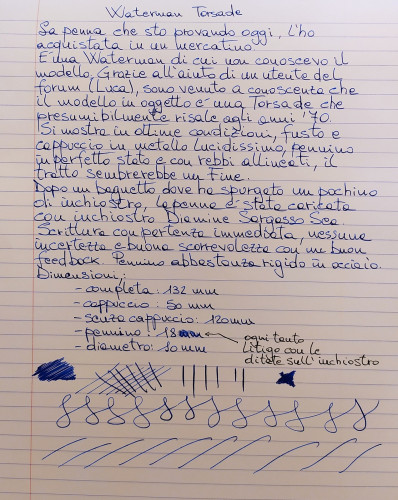 Waterman Torsade
La penna che sto provando oggi, l'ho
acquistata in un mercatino.
E' una Waterman di cui non conoscevo il
modello. Grazie all'aiuto di un utente del
forum (Luca), sono venuto a conoscenza che
il modello in oggetto e' una Torsade che
presumibilmente risale agli anni '70.
Si mostra in ottime condizioni, fusto e
cappuccio in metallo lucidissimo, pennino
in perfetto stato e con rebbi allineati, il
tratto sembrerebbe un Fine.
Dopo un bagnetto dove ho spurgato un pochino
di inchiostro, la penna e' stata caricata
con inchiostro Diamine Sargasso Sea.
Scrittura con partenza immediata, nessuna
incertezza e buona scorrevolezza con un buon
feedback. Pennino abbastanza rigido in acciaio.
Dimensioni:
- completa: 132 mm
- cappuccio: 50 mm
- senza cappuccio: 120mm
- pennino: 18mm
- diametro: 10 mm
ogni tanto
litigo con le
ditate sull'inchiostro